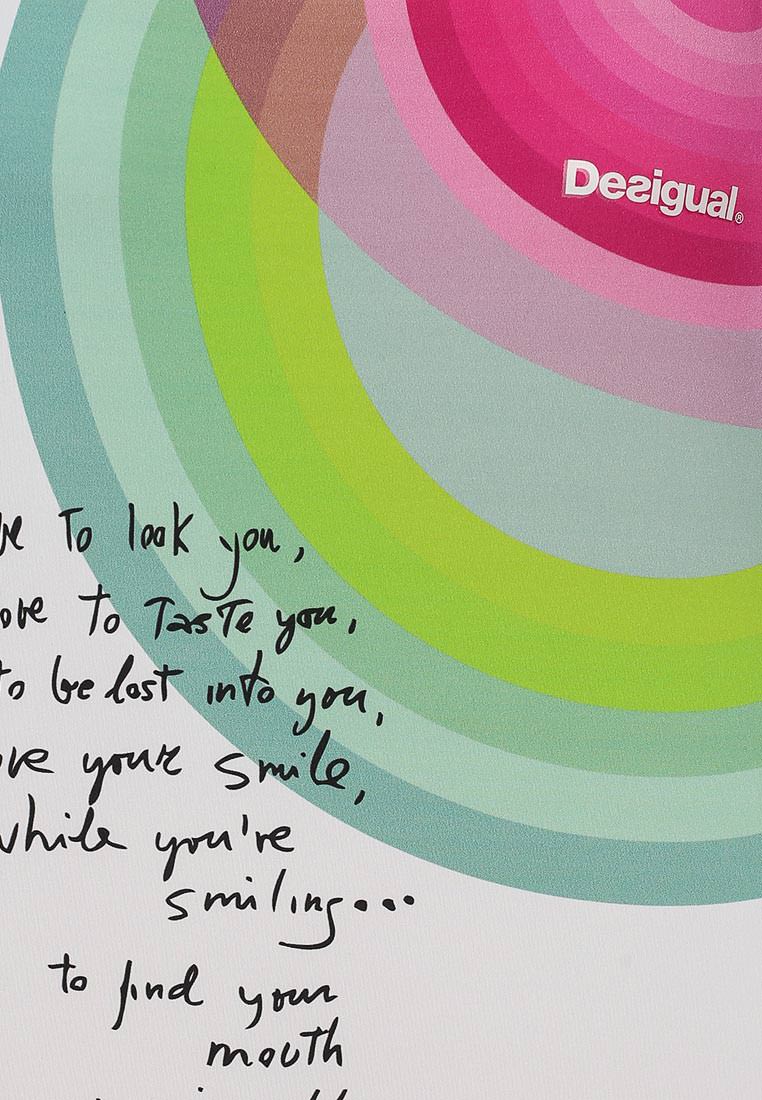 Desigual.®
ve To look you,
ove to TasTe you,
to be lost into you,
ove your smile,
while you're
smiling...
to find your
mouth